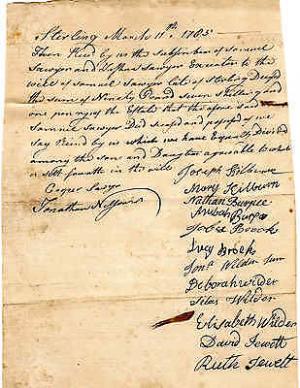 Sterling March 11th 1785
Then Recd by us the Subscribers of Samuel
Sawyer and Executor to the
will of Samuel Sawyer Late of Sterling Decesd
the sum of Ninety Pound Seven Shilling and
one penny of the Estate that the afore said
Samuel Sawyer Did and posessed of we
say Recd by us which we have Equally Divided
among the son and Daughters agreeable to
is sett forath in the will
Joseph Kilburn
Mary Kilburn
Jonathan
Nathan Burpee
Burpee
Brooks
Lucy Brooks
Jona Wilder Jun
Deborah Wilder
Silas Wilder
Elisabeth Wilder
David Jewett
Ruth Jewett